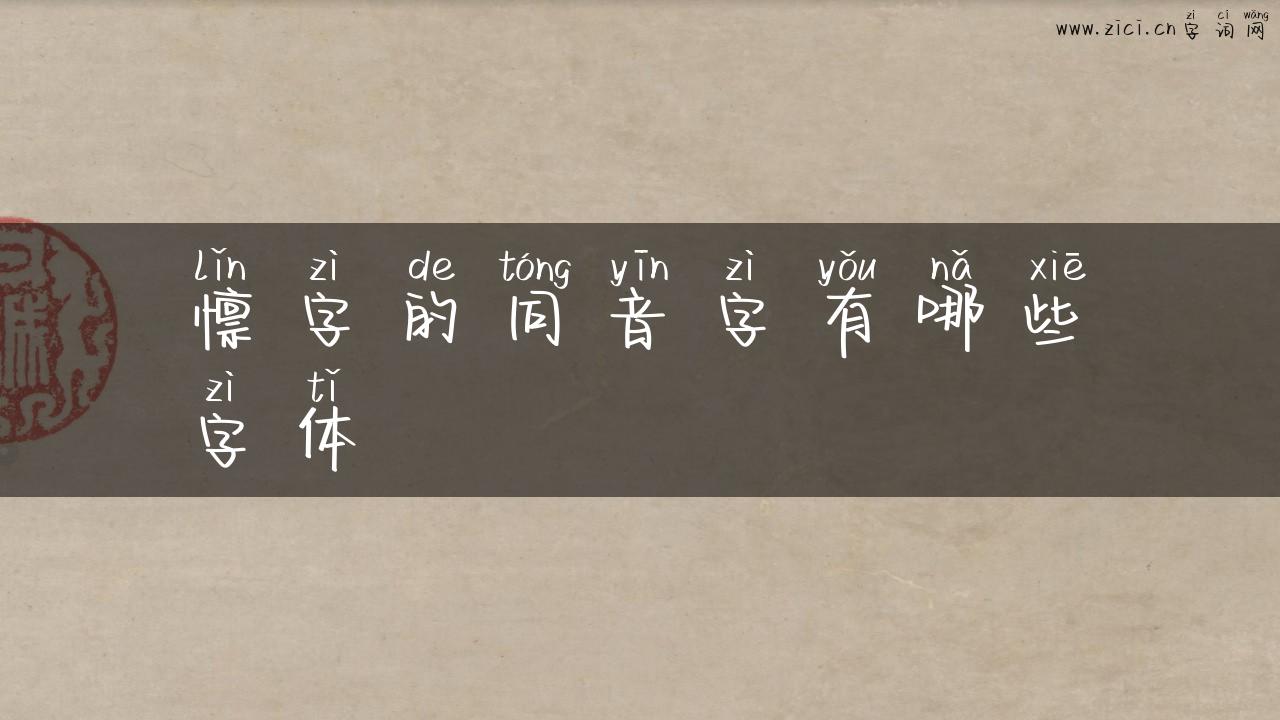 zì cí wǎng
www.zici.cn 字词网
lǐn zì de tóng yīn zì yǒu nǎ xiē
懔字的同音字有哪些
zì tǐ
字体